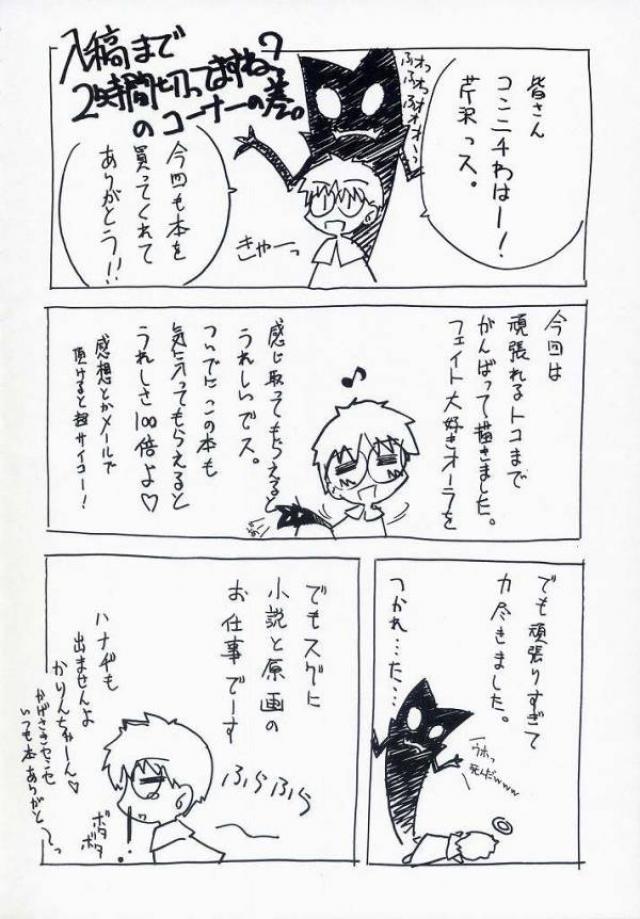 入稿まで
2時間切ってますね?
のコーナーの巻。
皆さん
コンニチわはー!
芹沢っス。
ふわっ
きゃーっ
今回も本を
買ってくれて
ありがとう!!
今回は
頑張れるトコまで
がんばって描きました。
フェイト大好きオーラを
♪
感じ取ってもらえると
うれしいでス。
ついでにこの本も
気に入ってもらえると
うれしさ100倍よ♡
感想とかメールで
頂けると超サイコー!
でも頑張りすぎて
力尽きました。
つかれ…た…
ウホっ
死んだwww
でもスグに
小説と原画の
お仕事でーす
ふらふら
ハナヂも
出ませんよ
かりんちゃーん♡
いつも本ありがと〜っ
ボタ
ボタ